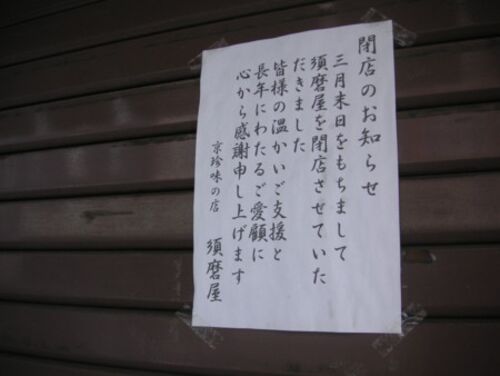 閉店のお知らせ
三月末日をもちまして
須磨屋を閉店させていた
だきました
皆様の温かいご支援と
長年にわたるご愛顧に
心から感謝申し上げます
京珍味の店 須磨屋